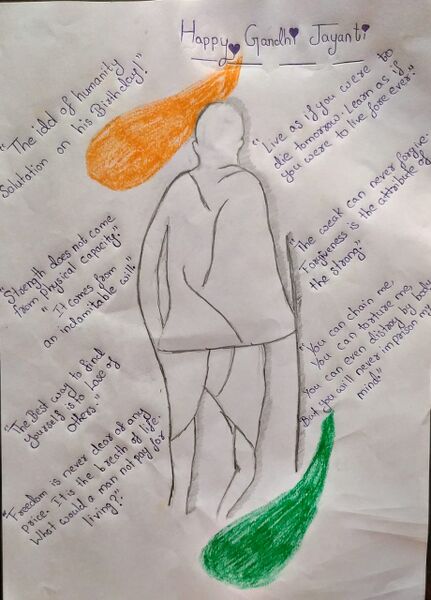 Happy Gandhi Jayanti
"The idol of humanity
Solutation on his Birthday!"
"Live as if you were to
die tomorrow. Learn as if
you were to live fore ever."
"Strength does not come
from physical capacity."
"It comes from
an indomitable will."
"The weak can never forgive.
Forgiveness is the attribute of
the strong."
"The Best way to find
yourself is to lose of
others."
"You can chain me,
You can torture me,
You can even distroy by body
But you will never imprison my
mind."
"Freedom is never dear of any
price. It is the breath of life.
What would a man not pay for
living?"